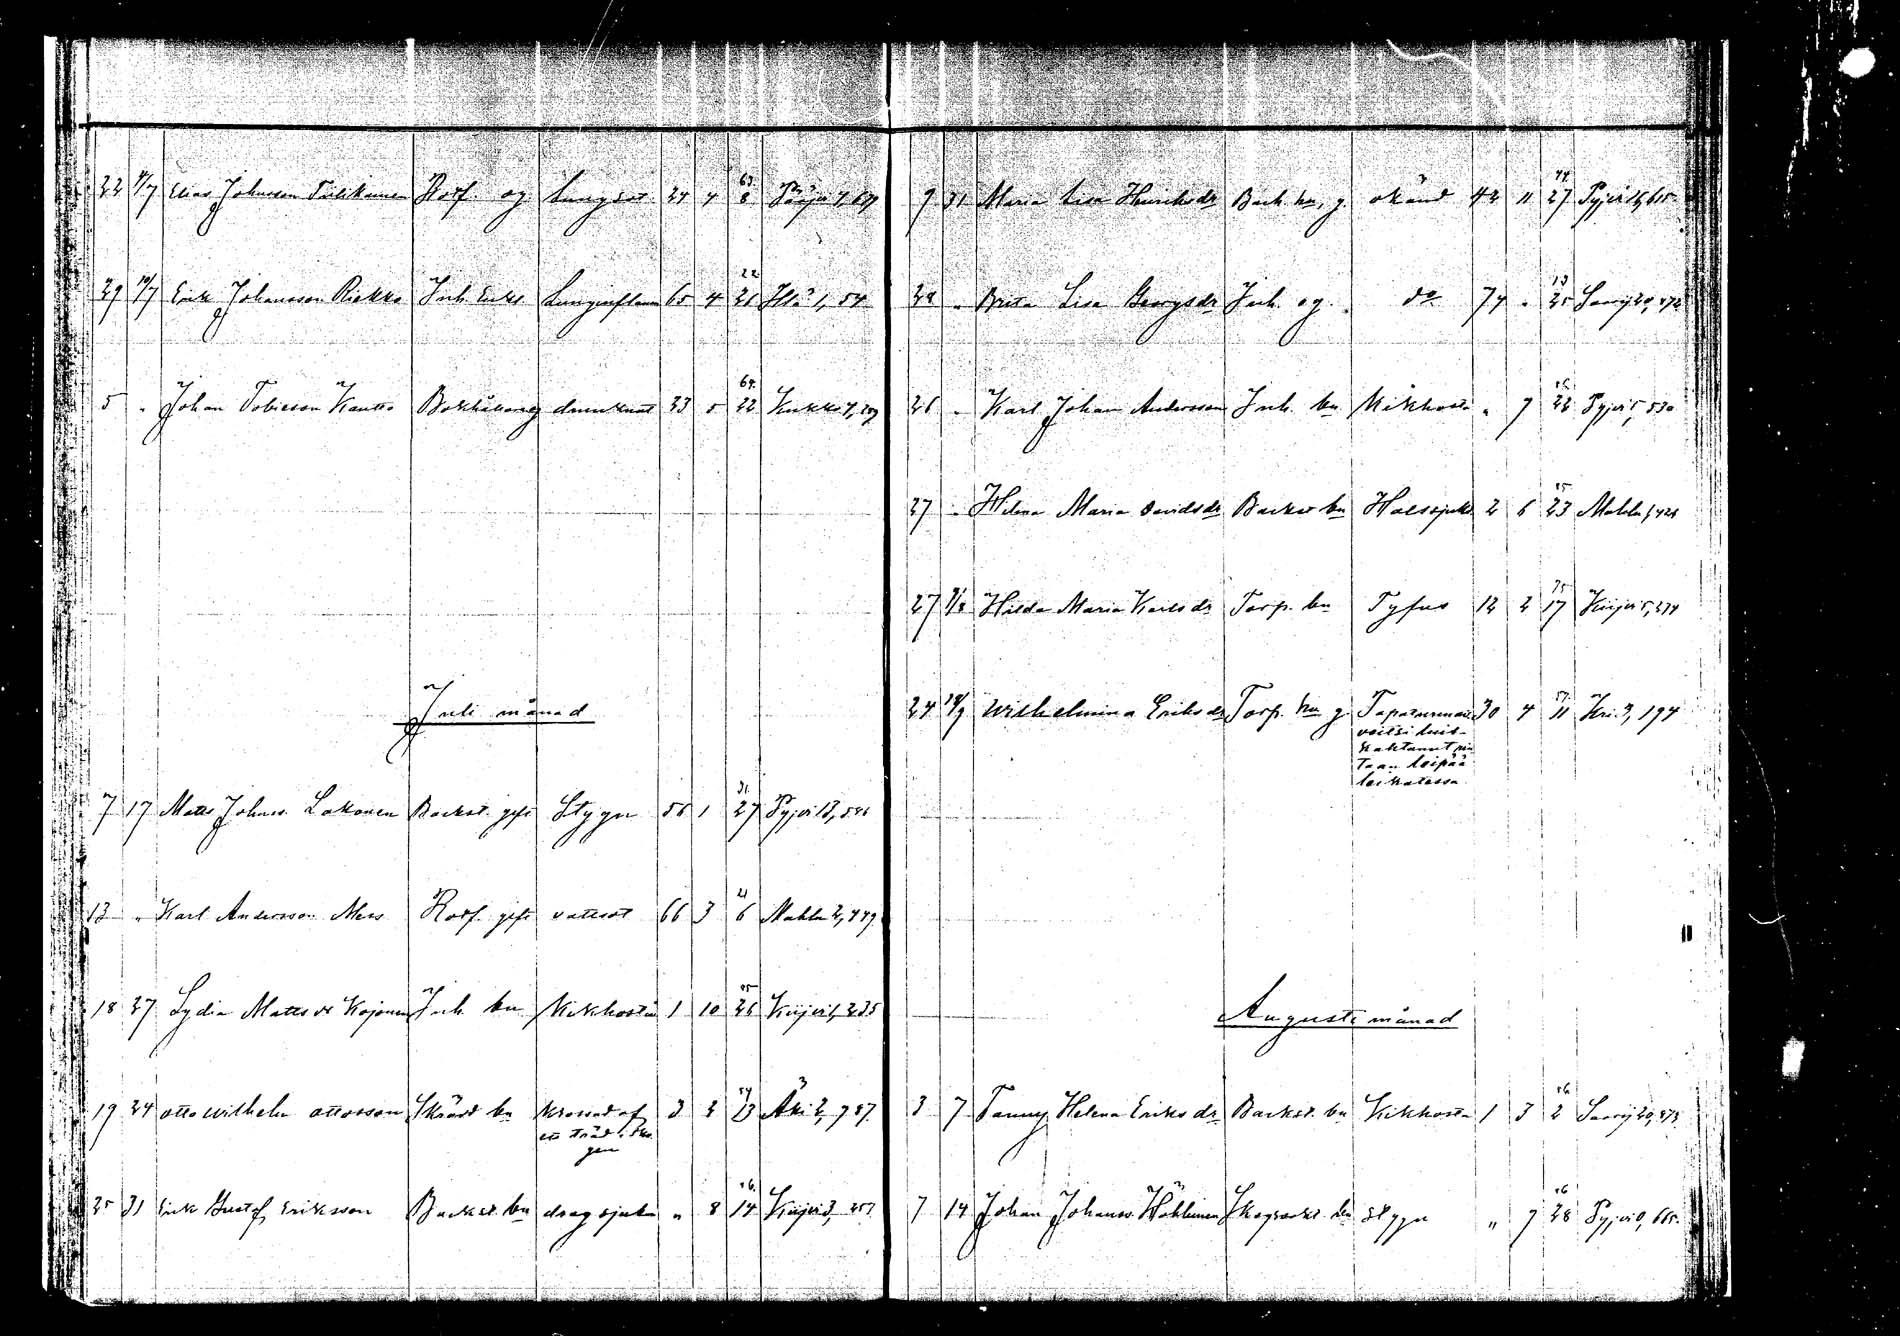 22 4/7 Elias Johansson Tulikainen Rotf. og Lungsot 24 4 63. 8 7, 639
29 10/7 Erik Johansson Riekko Inh. Enkl Lunginflam 65 4 22 26 1, 54
5 " Johan Tobiesson Kautto Bokhållare og drunknat 23 5 64. 22 Kukko 7, 209
Juli månad
7 17 Matts Johanss. Lakonen Backst. gift Stygn 56 1 31. 27 Pyjvi 13, 586
13 " Karl Andersson Mers Rotf. gift vattsot 66 3 21 6 Mahlu 2, 449
18 27 Lydia Matts dr Kojonen Inh. bn Kikhosta 1 10 85 26 Kiijvi 1, 235
19 24 Otto Wilhelm Ottosson Skrädd bn krossad af 3 2 84 23 Äki 2, 787.
ett träd i sko-
gen
25 31 Erik Gustaf Eriksson Backst. bn dragsjuka " 8 86. 14 Kiijvi 3, 257
9 31 Maria Lisa Henriksdr Back. hu, g. okänd 42 11 44. 27 Pyjvi 16, 615
28 " Brita Lisa Georgsdr Inh. og. do 74 " 13 25 Saarij 20, 872
26 " Karl Johan Andersson Inh. bn Kikhosta " 7 86. 22 Pyjvi 5, 530
27 " Hilma Maria Davidsdr Backst bn Halssjuka 2 6 85 23 Mahlu 1, 424
27 8/8 Hilda Maria Karlsdr Torp. bn Tyfus 12 2 75 17 Kiijvi 5, 274
24 18/9 Wilhelmina Eriksdr Torp. hu g. Tapaturmaise 30 4 57. 11 Kri. 3, 194
veitsi luis-
kahtanut rin
taan leipää
leikatessa
Augusti månad
3 7 Fanny Helena Eriksdr Backst. bn Kikhosta 1 3 86 2 Saarij 20, 873
7 14 Johan Johanss. Häkkinen Skogvakt. bn Stygn " 7 86 28 Pyjvi 9, 665.